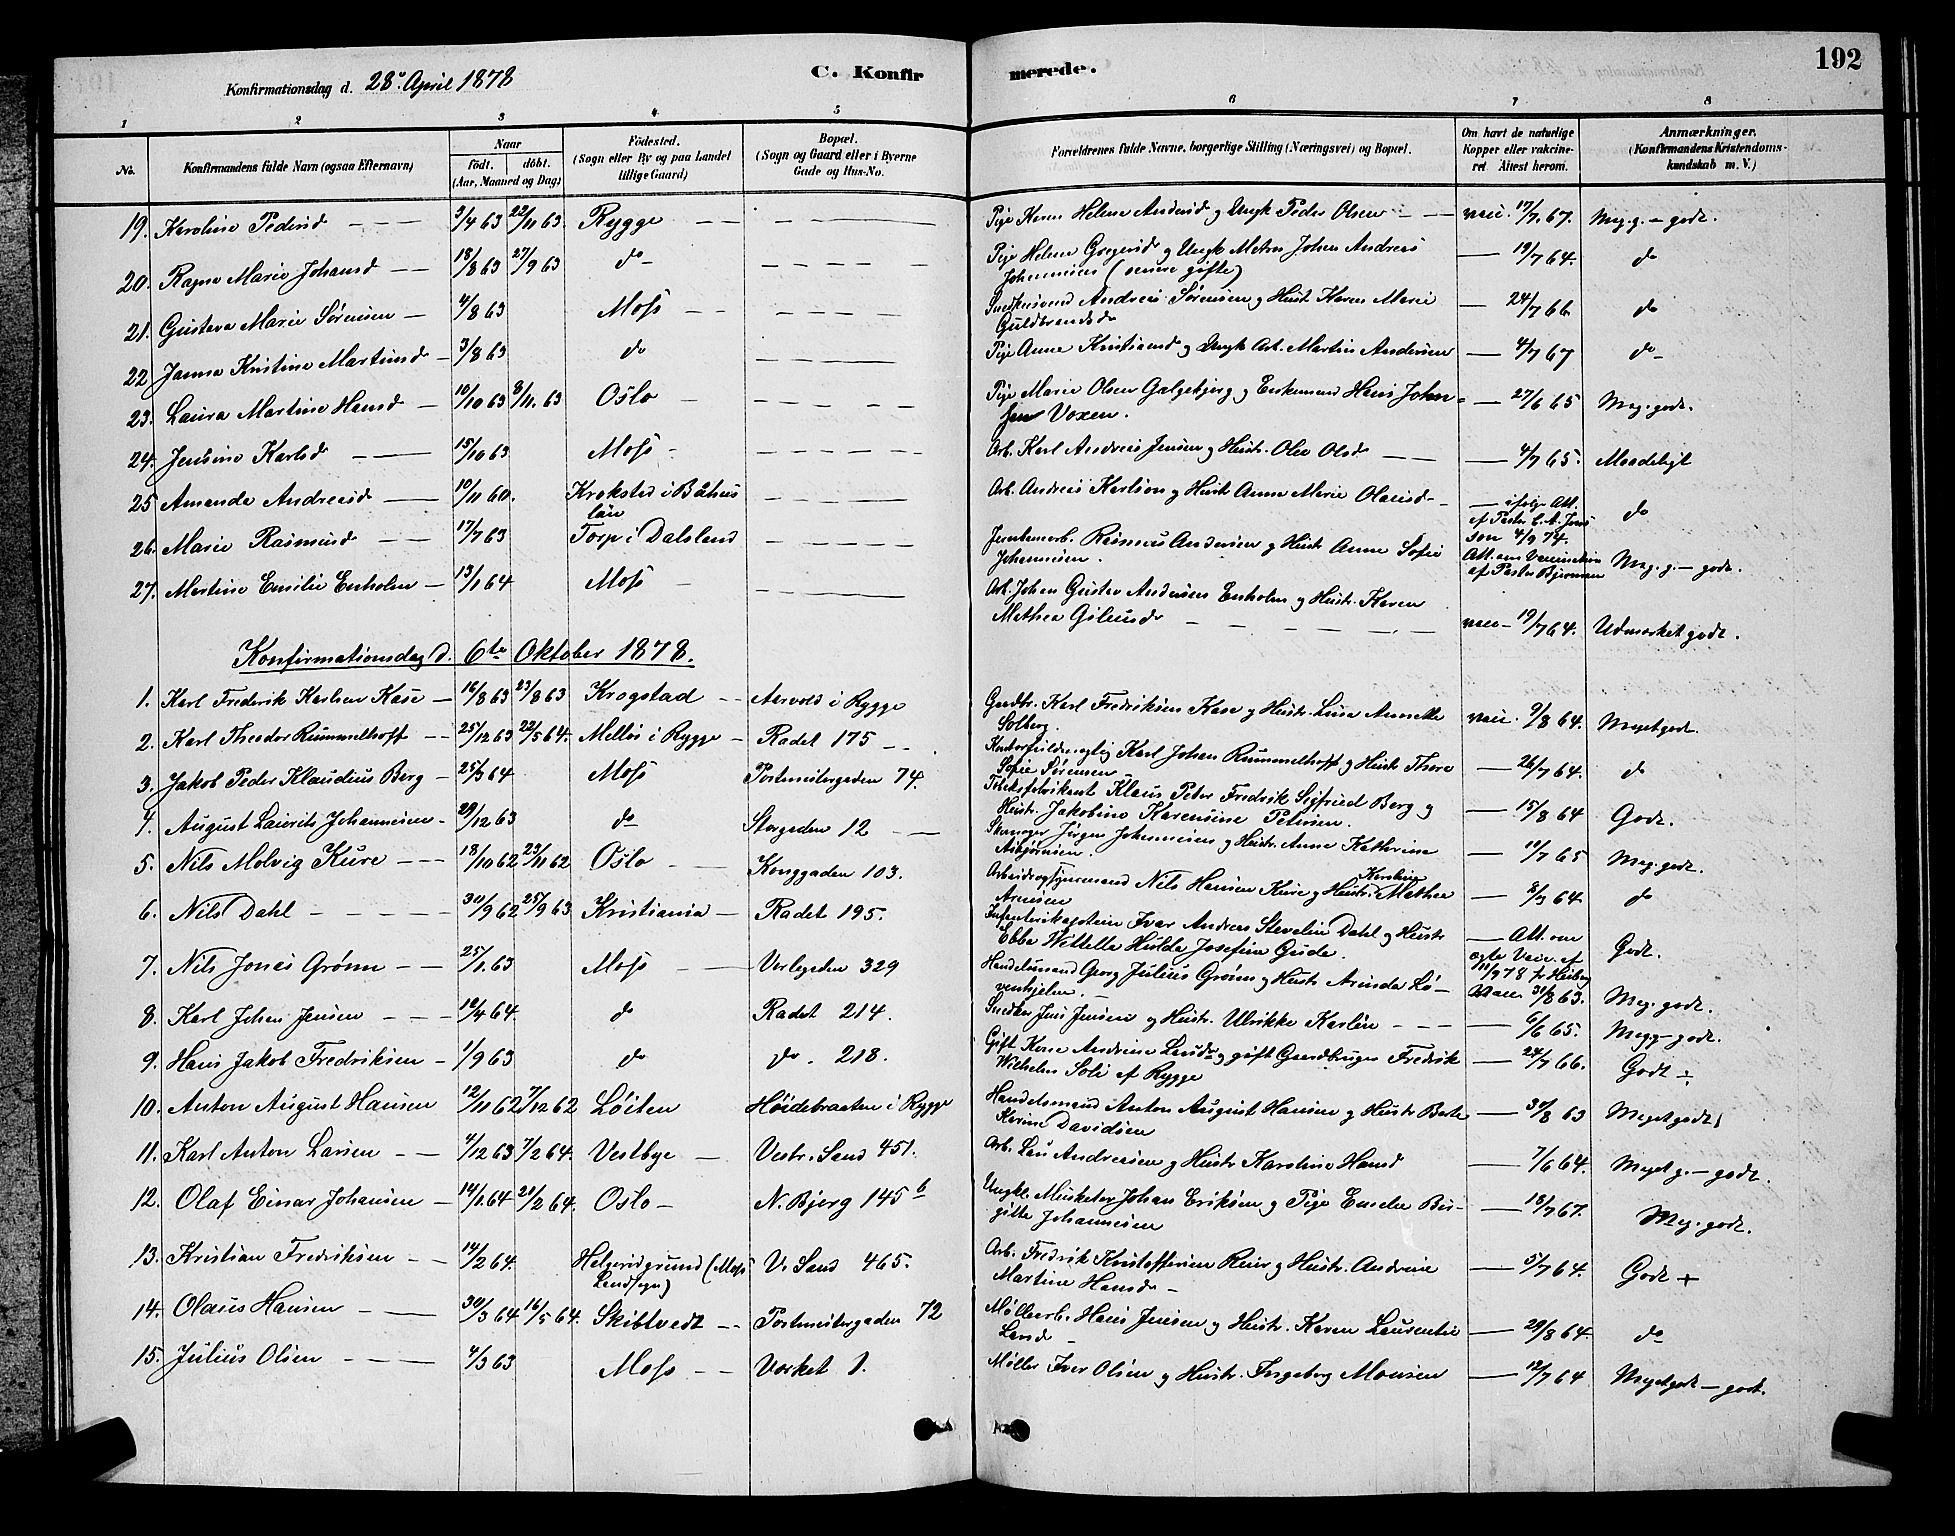 192
Konfirmationsdag d. 28de April 1878
C. Konfirmerede.
1 2 3 4 5 6 7 8
No.
Konfirmandens fulde Navn (ogsaa Efternavn)
Naar
födt. döbt.
(Aar, Maaned og Dag)
Födested.
(Sogn eller By og paa Landet
tillige Gaard)
Bopæl.
(Sogn og Gaard eller i Byerne
Gade og Hus-No.
Forældrenes fulde Navne, borgerlige Stilling (Næringsvei) og Bopæl.
Om havt de naturlige
Kopper eller vaccine-
ret Attest herom.
Anmærkninger.
(Konfirmandens Kristendoms-
kundskab m. V.)
19. Karoline Pedersd — — 3/4 63 22/11 63. Rygge — — — — Pige Karen Helene Andersd. og Ungk Peder Olsen — — vacc. 17/7 67. Meg. g. — godt.
20. Ragna Marie Johansd — — 18/8 63 27/9 63 do — — — — — Pige Helene Gregersd og Ungk Matrs Johan Andreas
Johannesen (senere gifte) — 19/7 64. do
21. Gustava Marie Sørensen — 4/8 63 Moss — — — — — — Snedkersvend Andreas Sørensen og Hust. Karen Marie
Guldbrandsd. — 24/7 66 do
22 Janna Kristine Martinsd — 3/8 63 do — — — — Pige Anne Kristiansd og Ungk Arb. Martin Andersen — 4/7 67 do
23. Laura Martine Hansd — 10/10 63 8/11. 63 Oslo — — — — — Pige Marie Olsen Galgebjerg og Enkemand Hans Johan-
sen Voxen. — 27/6 65 Meg. godt.
24. Jensine Karlsd — — 15/10 63 Moss — — — — — Arb. Karl Andreas Jensen og Hustr. Olea Olsd — — — 4/7 65. Maadeligt
25 Amanda Andreasd — 10/11 60. Krokstad i Båhus
län — — — — Arb. Andreas Karlson og Hustr Anne Marie Olausd — — ifølge Att.
af Pastor C. A. Jons
son 4/9 74. do
26. Marie Rasmusd — — 17/7 63 Torp i Dalsland — — — — Jernbanearb. Rasmus Andersen og Hustr Anne Sofie
Johannesen. Att. om Vaccination
af Pastor Bjerman Meg. g. — godt.
27. Martine Emilie Enholm — 13/1 64 Moss — — — — — Arb. Johan Gustav Andersen Enholm og Hustr. Karen
Mathea Gilsusd — — — — vacc — 19/7 64. Udmærket godt.
Konfirmationsdag d. 6te Oktober 1878.
1. Karl Fredrik Karlsen Kase — 16/8 63 23/8 63 Krogstad — — Aarvold i Rygge Gaardbr. Karl Fredriksen Kase og Hustr. Lina Annette
Solberg. vacc. 9/8 64. Meget godt.
2. Karl Theodor Rummelhoff — — 25/12 63 22/5 64. Melløs i Rygge — Radet 175 — — Kontorfuldmægtig Karl Johan Rummelhoff og Hustr. Thora
Sofie Sørensen — 26/7 64. do
3. Jakob Peder Klaudius Berg — 25/3 64 Moss Postmestergaden 74. Tobaksfabrikant Klaus Peter Fredrik Sigfried Berg og
Hustr. Jakobine Karensine Petersen. — 15/8 64 Godt.
4. August Lauritz Johannesen — 29/12 63 do Storgaden 12 — — Skomager Jörgen Johannesen og Hustr. Anne Kathrine
Asbjørnsen. — 11/7 65 Meg. godt.
5. Nils Molvig Kure — — 18/10 62 23/11 62 Oslo — Konggaden 103. Arbeidsopsynsmand Nils Hansen Kure og Hustr. Karoline Mathea
Arnesen — 8/9 64. do
6. Nils Dahl — — — — 30/9 62 25/9 63 Kristiania — Radet 195. Infanterikaptein Ivar Andreas Stevelin Dahl og Hustr
Ebba Wittella Hulda Josefine Gude. — Att. om
egte Vacc. af
11/9 78 fr Heiberg Godt.
7. Nils Jonas Grønn — — 25/1. 63 Moss — — Værlegaden 329 Handelsmand Georg Julius Grønn og Hustr. Arinda Lø-
venhjelm. — Vacc. 31/8 63. Meg. godt.
8. Karl Johan Jensen — — — 12/4 64. do Radet 214. Snedker Jens Jensen og Hustr. Ulrikke Karlsen — — — — 6/6 65. Meg g — godt.
9. Hans Jakob Fredriksen — 1/9 63 do do. 218. Gift Kone Andrine Larsd. og gift Gaardbruger Fredrik
Wilhelm Soli af Rygge — 24/7 66. Godt ÷
10. Anton August Hansen 12/11 62 7/12 62 Løiten Høidebraaten i Rygge Handelsmand Anton August Hansen og Hustr Berte
Karine Davidsen — 31/8 63 Meget godt.
11. Karl Anton Larsen — — 4/12 63 7/2 64. Vestbye — Vestr. Sand 451. Arb. Lars Andreasen og Hustr Karoline Hansd — 7/6 64. Meget g. — godt.
12. Olaf Einar Johansen — 14/1 64 21/2 64. Oslo — N. Bjerg 145 b Ungkl. Musketer Johan Eriksen og Pige Emelie Bir-
gitte Johannesen — 18/7 67. Meg. godt.
13. Kristian Fredriksen — — 14/2 64. Helgerødgrund (Moss
Landsogn) V. Sand 465. Arb. Fredrik Kristoffersen Reier og Hustr. Andrine
Martine Hansd — — 5/7 64. Godt +
14. Olaus Hansen — — 30/3 64 16/5 64. Skibtvedt — — Postmestergaden 72 Møllearb. Hans Jensen og Hustr. Karen Laurentse
Larsd — — 29/8 64. do
15. Julius Olsen — — — 4/3 63 Moss — — Værket 1. Møller Iver Olsen og Hustr. Ingeborg Monsen — 12/7 64 Meget godt — godt.